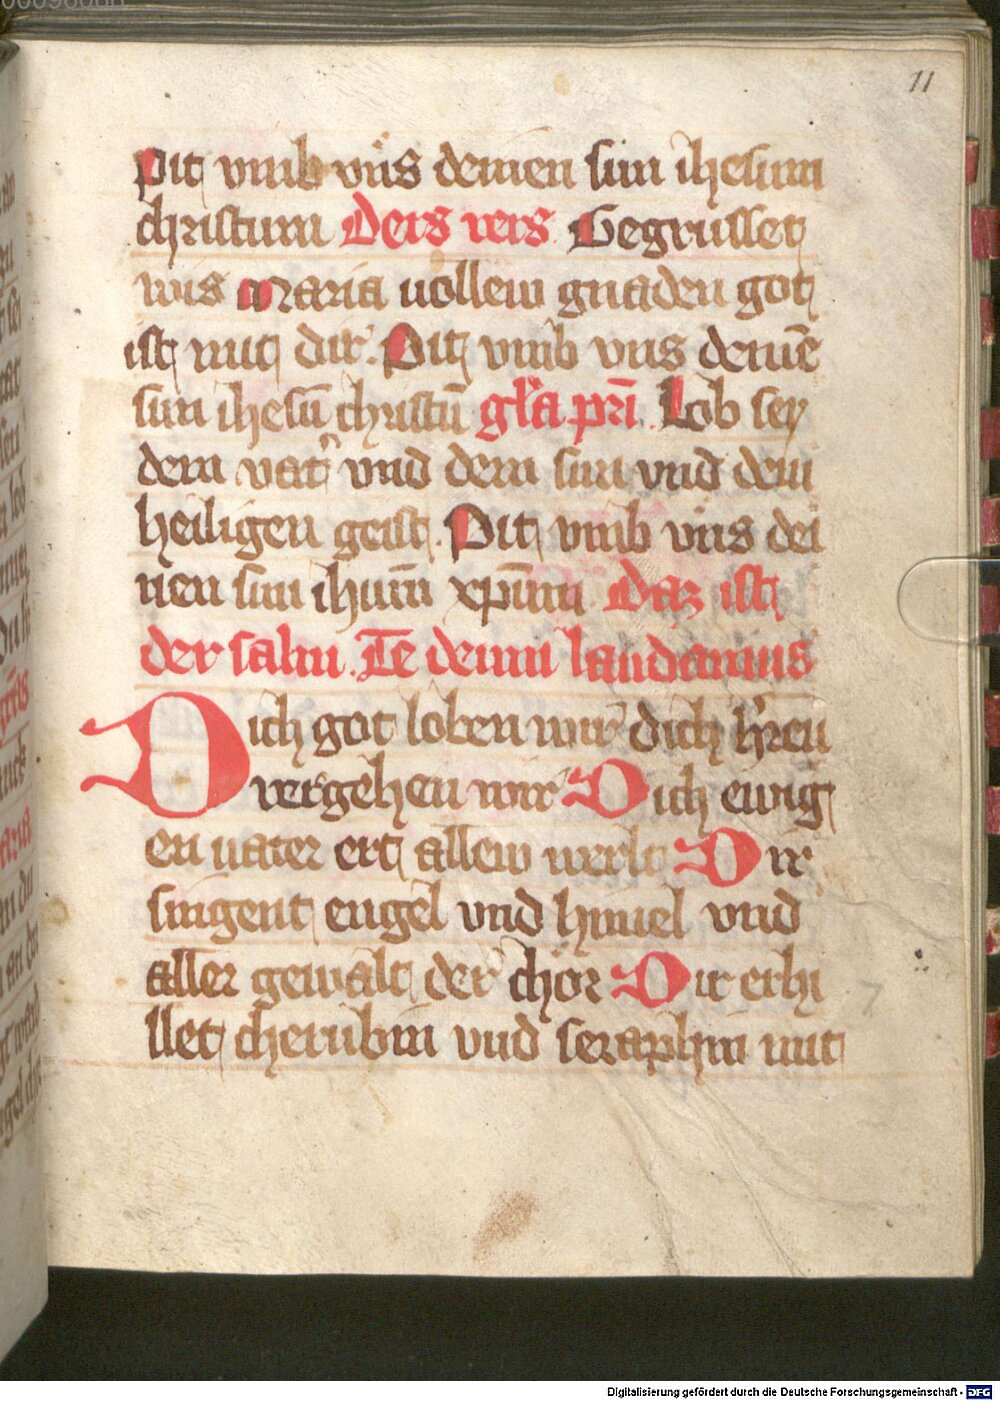 11
Pit vmb vns deinen sun ihesum
christum Ders vers Gegrusset
wis Maria vollew gnaden got
ist mit dir. Pit vmb vns deinē
sun ihesū christū gl'a pr̄i. Lob sey
dem vat' vnd dem sun vnd dem
heiligen geist. Pit vmb vns dei
nen sun ihum̄ xp̄m Daz ist
der salm. Te deum laudamus
Dich got loben wir dich h'ren
vergehen wir Dich ewig
en vater ert allew werlt Dir
singent engel vnd himel vnd
aller gewalt der chor Dir erhi
llet cherubin vnd seraphin mit
7
Digitalisierung gefördert durch die Deutsche Forschungsgemeinschaft - DFG